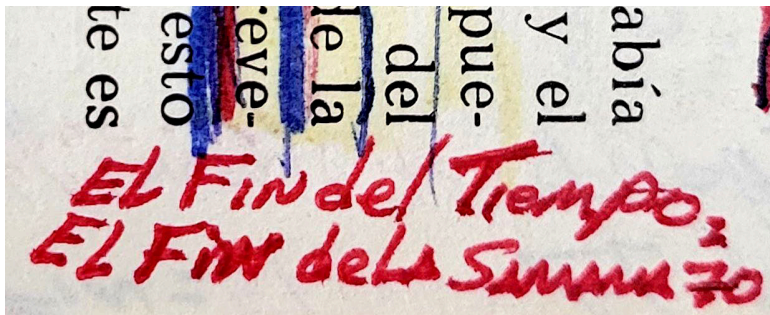 abía
y el
pue-
del
de la
reve-
esto
te es
EL FIN del Tiempo.
EL FIN de la Semana 70